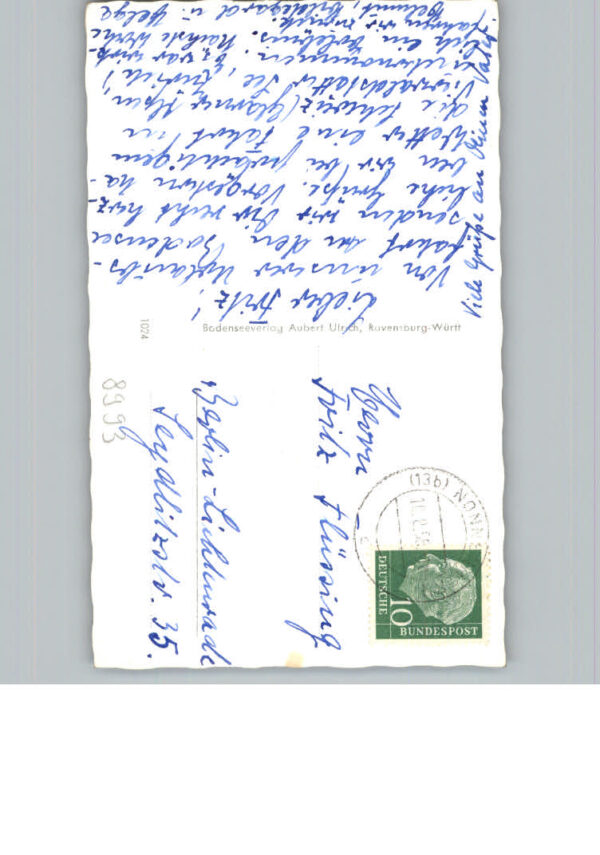 Lieber Fritz!
Von unserer Urlaubs-
fahrt an den Bodensee
senden wir Dir recht herz-
liche Grüße. Vorgestern ha-
ben wir bei prächtigem
Wetter eine Fahrt in
die Schweiz (Glarner Alpen,
Vierwaldstätter See, Zürich)
unternommen. Es war wirk-
lich ein Erlebnis. Nächste Woche
fahren wir zurück.
Helmut, Hildegard u. Helga
Viele Grüße an Deinen Vater!
Bodenseeverlag Aubert Ulrich, Ravensburg-Württ
1024
Herrn
Fritz Flüssing
Berlin-Lichtenrade
Seydlitzstr. 35.
8993
(13b) NONNE
DEUTSCHE
BUNDESPOST
10